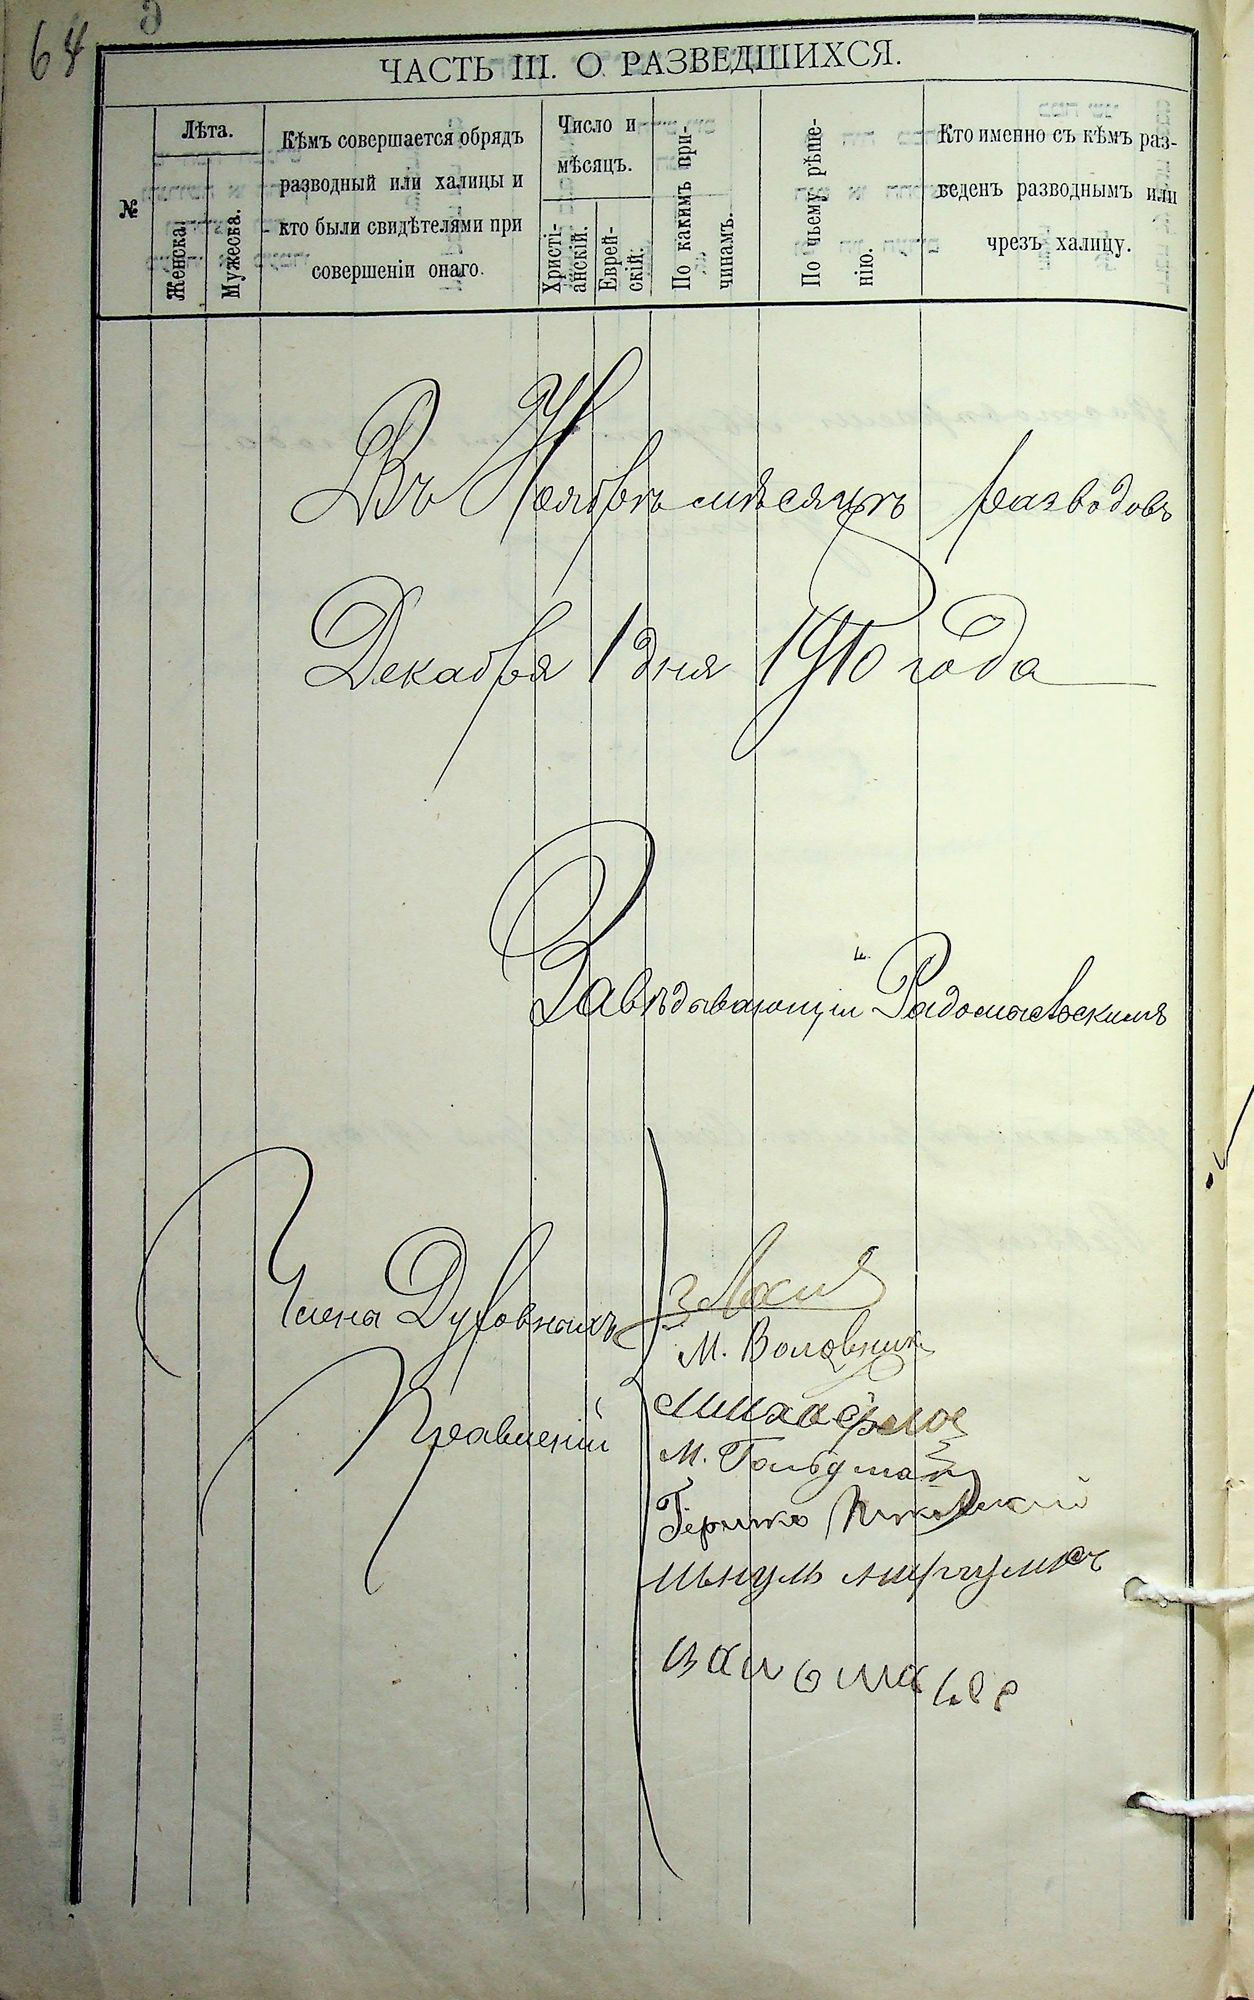 64
ЧАСТЬ III. О РАЗВЕДШИХСЯ.
№
Лѣта.
Женска.
Мужеска.
Кѣмъ совершается обрядъ
разводный или халицы и
кто были свидѣтелями при
совершеніи онаго.
Число и
мѣсяцъ.
Христі-
анскій.
Еврей-
скій.
По какимъ при-
чинамъ.
По чьему рѣше-
нію.
Кто именно съ кѣмъ раз-
веденъ разводнымъ или
чрезъ халицу.
Въ Ноябрѣ мѣсяцѣ разводовъ
Декабря 1 дня 1910 года
Завѣдывающій Радомысльскимъ
Члены Духовныхъ
Правленій
М. Воловник
М. Гольдман
Гершко